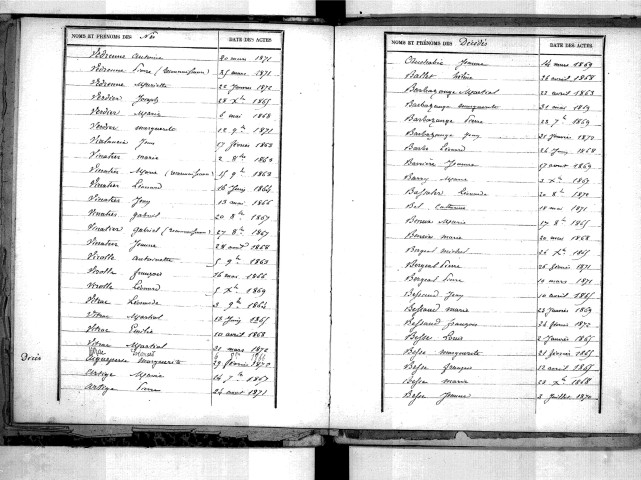 NOMS ET PRÉNOMS DES Nés DATE DES ACTES
Vedrenne Antoine 20 mars 1871
Vedrenne Pierre (reconnaissance) 25 mars 1871
Vedrenne Mariette 22 février 1872
Verdier Joseph 28 Xbre 1865
Verdier Marie 6 mai 1868
Verdier marguerite 12 9bre 1871
Jean 17 février 1868
Vinatier marie 2 8bre 1863
Vinatier Marie (reconnaissance) 15 9bre 1863
Vinatier Léonard 16 Juin 1864
Vinatier Jean 13 mai 1866
Vinatier gabriel 20 8bre 1867
Vinatier gabriel (reconnaissance) 27 8bre 1867
Vinatier Jeanne 28 août 1868
Virolle Antoinette 5 9bre 1863
Virolle françois 16 mai 1866
Virolle Léonard 5 Xbre 1869
Vitrac Léonarde 3 9bre 1864
Vitrac Martial 23 Juin 1865
Vitrac Emilie 10 avril 1868
Vitrac Martial 31 mars 1872
Vitrac
marguerite 29 février 1872
Artige Marie 24 7bre 1867
Artige Pierre 24 août 1871
NOMS ET PRÉNOMS DES Décédés DATE DES ACTES
Jeanne 14 mars 1869
Ballet hélène 26 avril 1868
Barbazange Martial 22 avril 1863
Barbazange marguerite 31 mai 1869
Barbazange Pierre 23 7bre 1869
Barbazange Jean 21 février 1870
Barbe Léonard 26 Juin 1868
Barrière Jeanne 17 août 1869
Barry Marie 3 Xbre 1869
Léonarde 20 8bre 1870
Bel Catherine 18 mai 1871
Marie 17 8bre 1865
marie 20 mars 1868
Bergeal michel 26 Xbre 1865
Bergeal Pierre 26 février 1871
Bergeal Pierre 10 mars 1871
Bessaud Jean 10 avril 1865
Bessaud marie 23 Janvier 1869
Bessaud françois 26 février 1872
Besse Louis 2 Janvier 1865
Besse marguerite 21 février 1865
Besse françois 22 avril 1865
Besse marie 22 Xbre 1868
Besse Jeanne 2 Juillet 1870